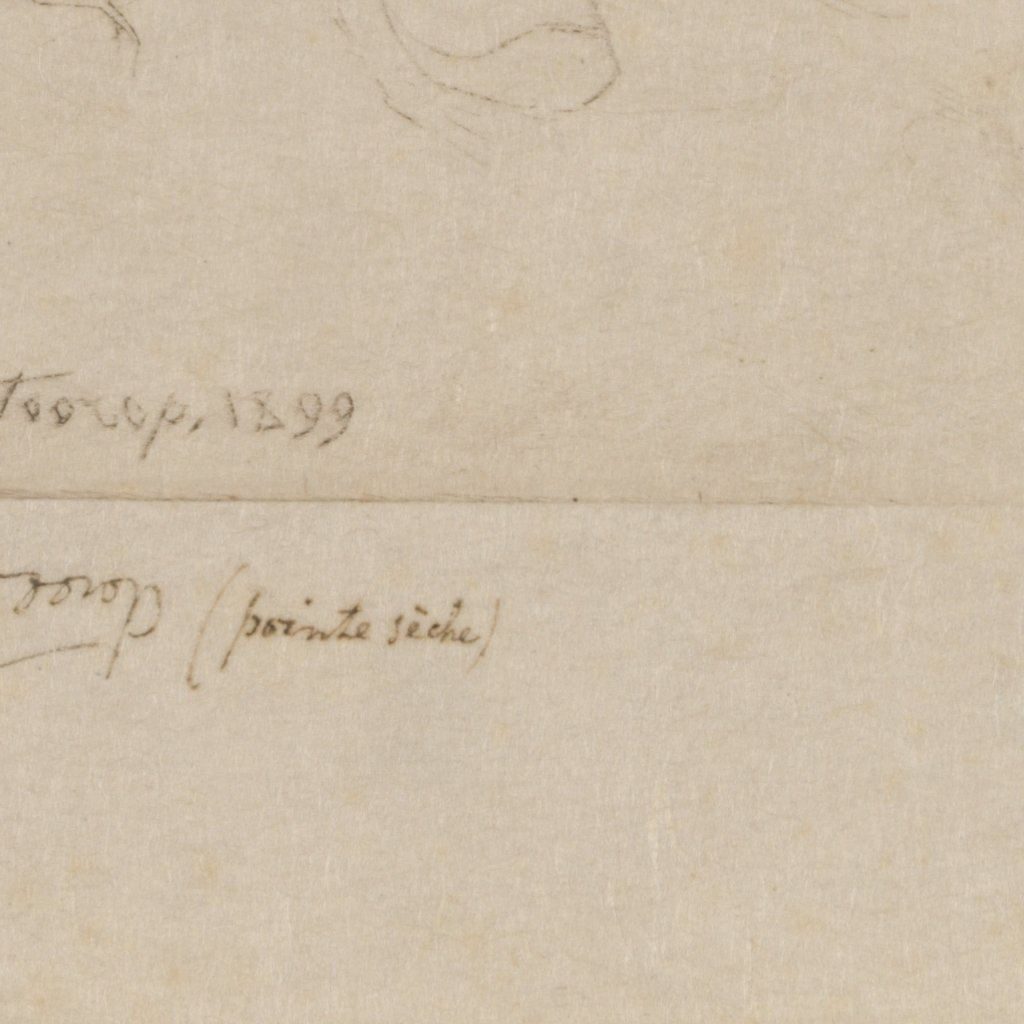 Toorop. 1899
Toorop (pointe sèche)